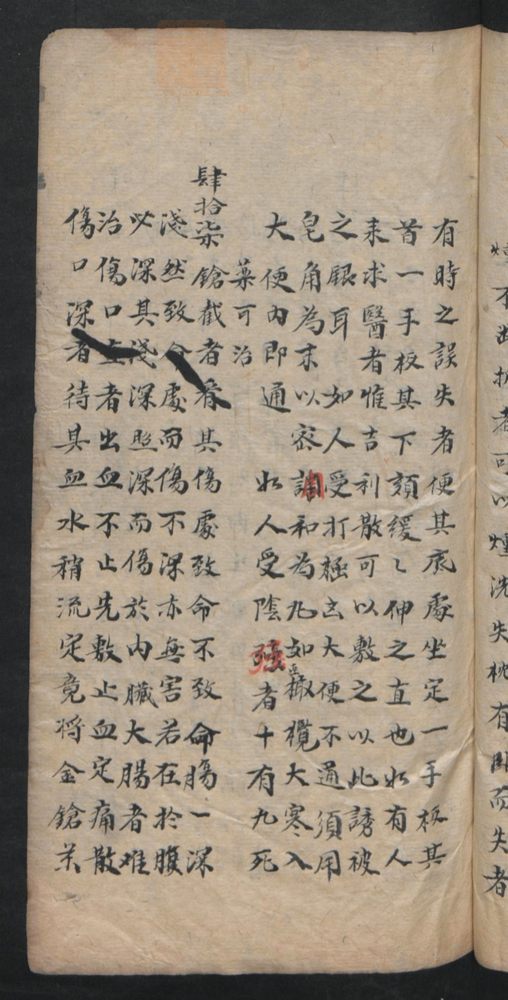 不
者可以煙洗失枕有因而失者
有時之誤失者便其底處坐定一手扳其
首一手扳其下頦緩〻伸之直也如有人
来求醫者惟吉利散可以敷之以此誘被
之銀耳如人受打極去大便不通須用
皂角為末以宻調和為丸如橄欖大寒入
大便内即通 如人受陰强者十有九死
薬可治
肆拾柒 鎗截者看其傷處致命不致命腸一深
淺然致命處而傷不深亦無害若在於腹
必深其淺深照深而傷於内臟大腸者难
治傷口者出血不止先敷止血定痛散
傷口深者待其血水稍流定竟将金鎗